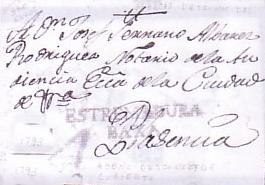 A D.n Josef Serrano Alvarez
Rodriguez Notario de la Au
diencia Ecca de la Ciudad
de
ESTREMADURA
BAXA
Plasencia